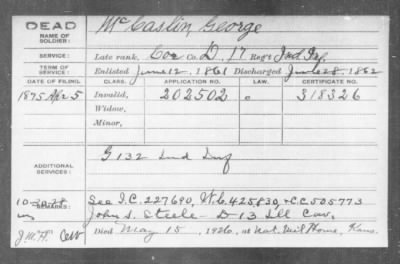 DEAD
NAME OF SOLDIER:
McCaslin, George
SERVICE:
Late rank, Cor Co. D, 17 Reg't Ind. Inf.
TERM OF SERVICE:
Enlisted June 12, 1861 Discharged June 28, 1862
DATE OF FILING. CLASS. APPLICATION NO. LAW. CERTIFICATE NO.
1875 Apr 5 Invalid, 202502 318326
Widow,
Minor,
ADDITIONAL SERVICES:
G 132 Ind Inf
REMARKS:
See I.C. 227690, W.C. 425830, & C.C. 505773
John S. Steele - D 13 Ill Cav.
Died May 15, 1926, at Nat. Mil. Home, Kans.